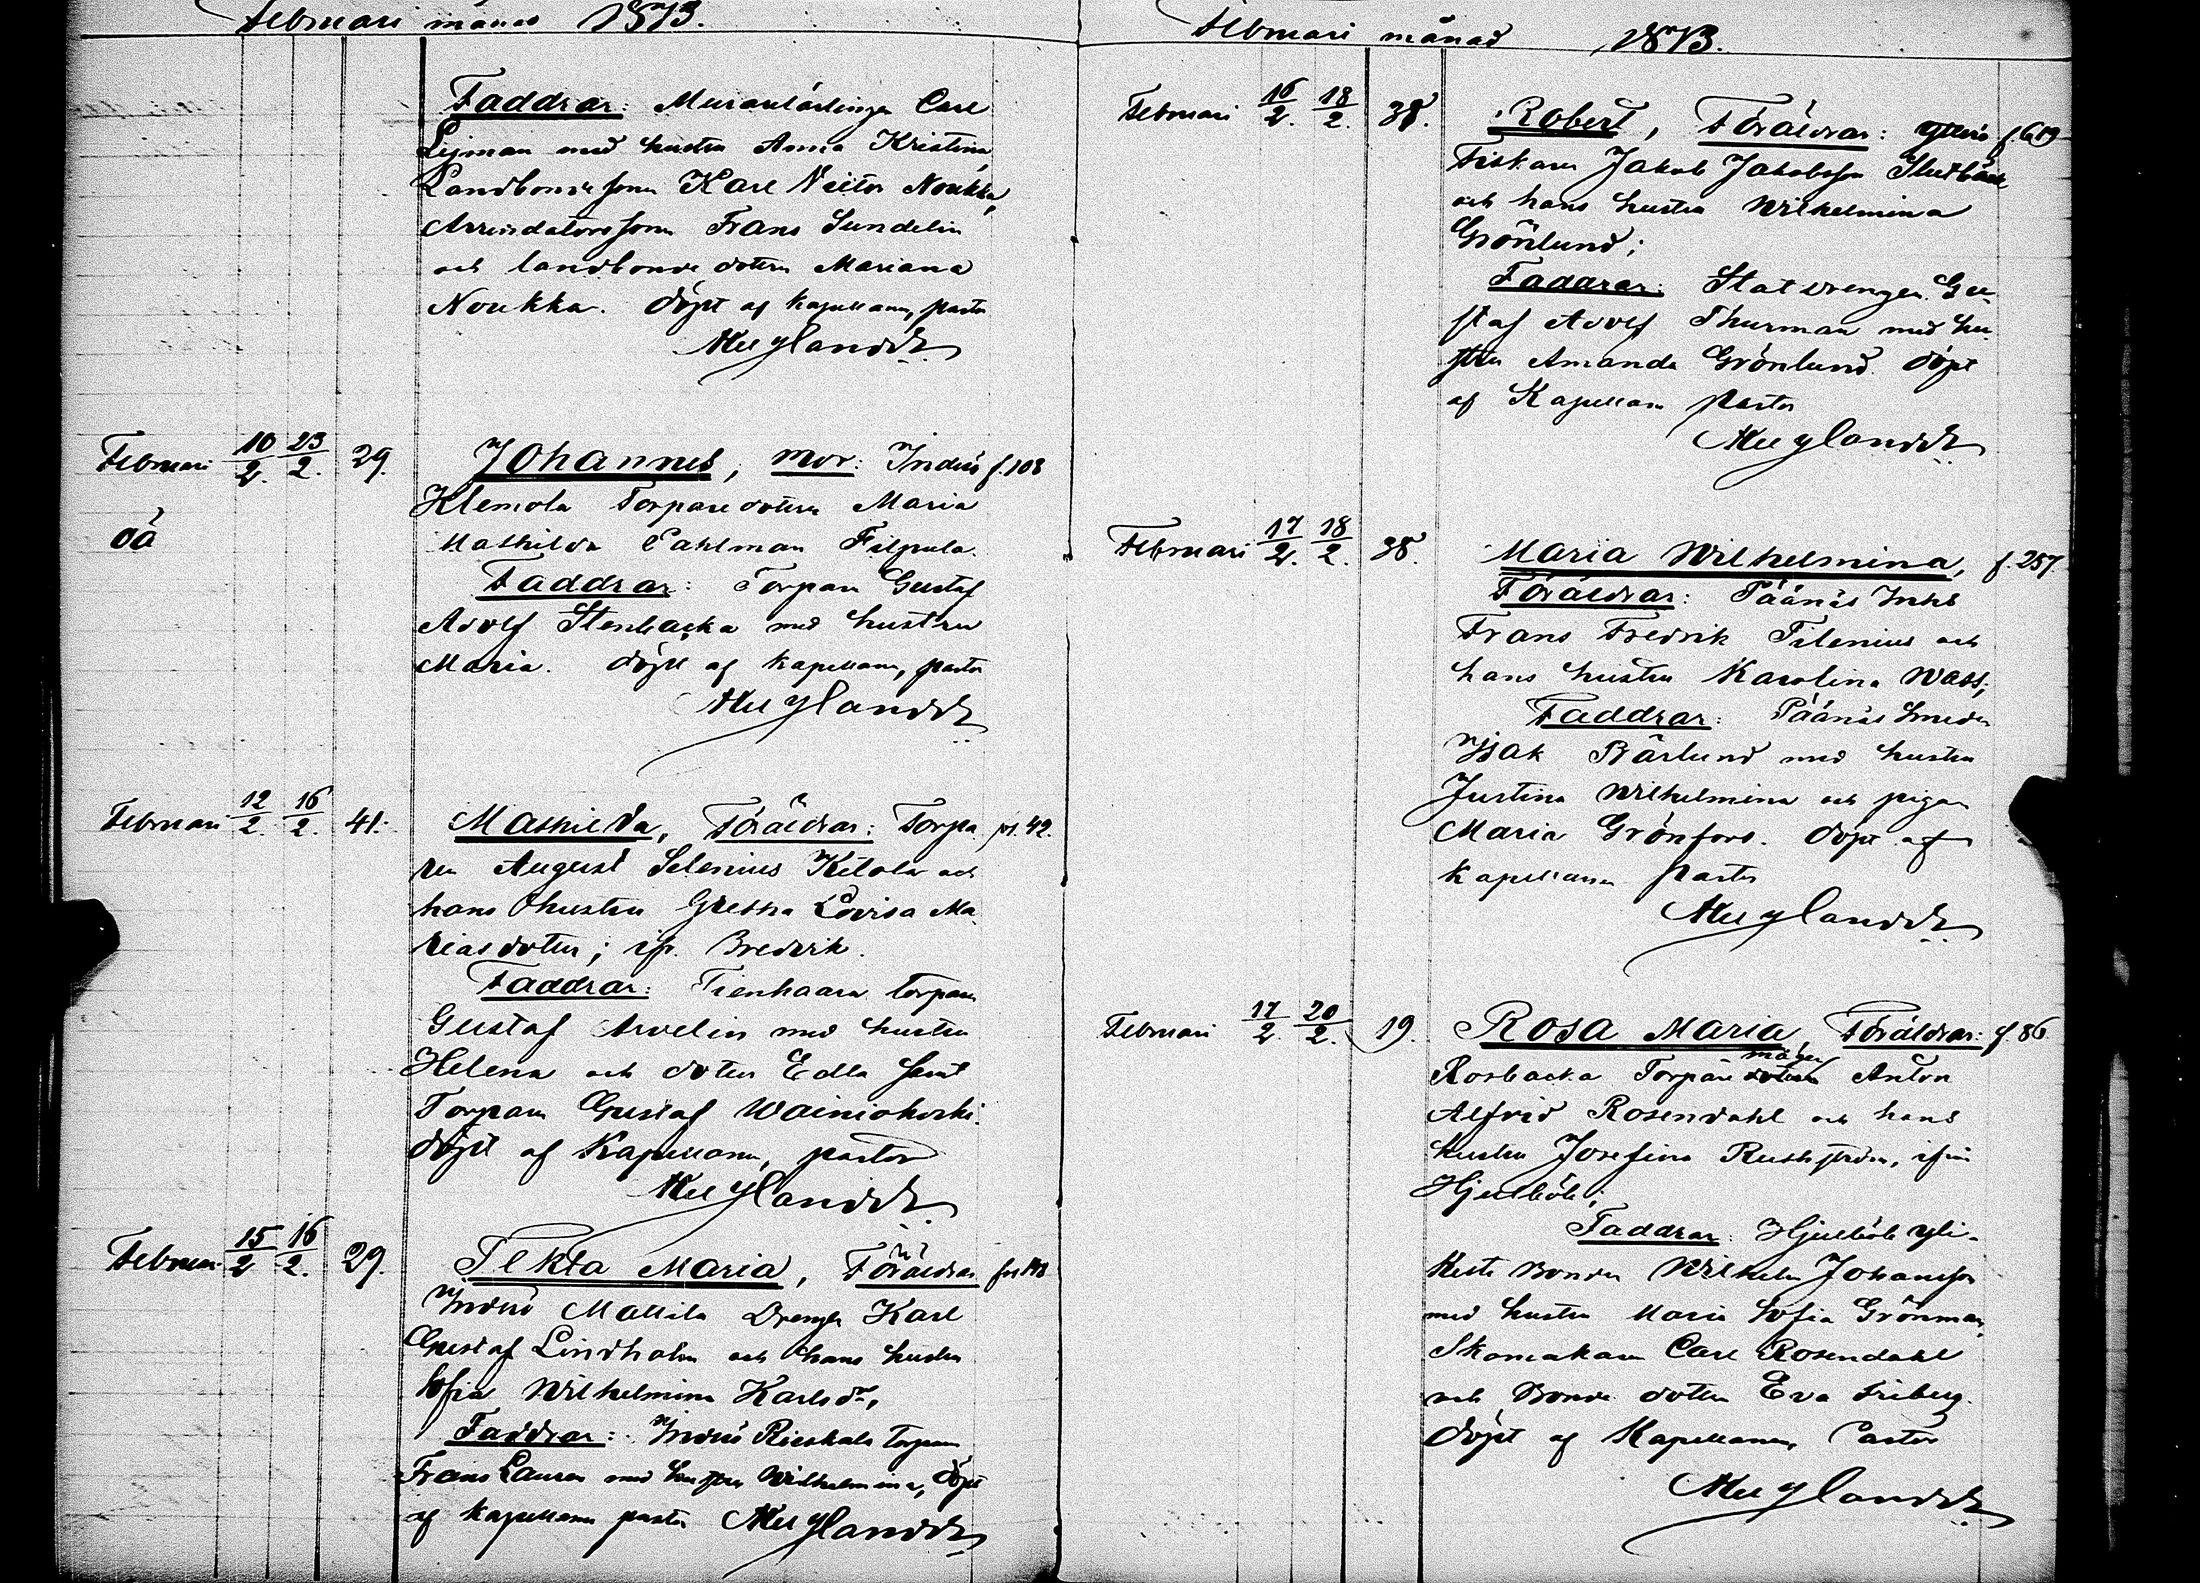 Februari månad 1873.
Faddrar: Muraulärlingen Carl
Lejman med hustru Anna Kristina,
Landbondesonen Karl Victor Noukka,
Arrendatorssonen Frans Sundelin
och landbonde dottren Mariana
Noukka. döpt af Kapellanen, pastor
Februari 10/2. 23/2. 29. Johannes, Mor: Inderö f. 108
oä
Klemola Torparedottern Maria
Mathilda Dahlman Filpula.
Faddrar: Torparen Gustaf
Adolf Stenbacka med hustru
Maria. döpt af kapellanen, pastor
Februari 12/2. 16/2. 41. Mathilda, Föräldrar: Torpa- 42.
ren August Selenius Ketola och
hans hustru Gretha Lovisa Ma-
riasdotter; ifr. Bredvik.
Faddrar: Tienhaara torparen
Gustaf Arvelin med hustru
Helena och dotter Edla samt
Torparen Gustaf Wainiokoski.
döpt af Kapellanen, pastor
Februari 15/2 16/2. 29. Tekla Maria, Föräldrar
Inderö Mattila Drengen Karl
Gustaf Lindholm och hans hustru
Sofia Wilhelmina Karlsdr,
Faddrar: Inderö Rieskala Torparen
Frans Lauren med hustru Wilhelmina, döpt
af kapellanen pastor
Februari månad 1873.
Februari 16/2. 18/2. 38. Robert, Föräldrar: Ytterö f. 619
Fiskaren Jakob Jakobsson
och hans hustru Wilhelmina
Grönlund;
Faddrar: Statdrengen Gu-
staf Adolf Thurman med hu-
stru Amanda Grönlund. döpt
af Kapellanen pastor
Februari 17/2. 18/2. 38. Maria Wilhelmina, f. 257
Föräldrar: Päänäs Inhs
Frans Fredrik Tilenius och
hans hustru Karolina Wass;
Faddrar: Päänäs Smeden
Isak Bärlund med hustru
Justina Wilhelmina och pigan
Maria Grönfors. döpt af
kapellanen pastor
Februari 17/2. 20/2. 19. Rosa Maria, Föräldrar: f. 86
Rosbacka Torpare mågen Anton
Alfrid Rosendahl och hans
hustru Josefina ifrån
Hjulböle;
Faddrar: Hjulböle Yli-
Kesti Bonden Wilhelm Johansson
med hustru Maria Sofia Grönman,
Skomakaren Carl Rosendahl
och Bonde dotten Eva Friberg.
döpt af Kapellanen, Pastor